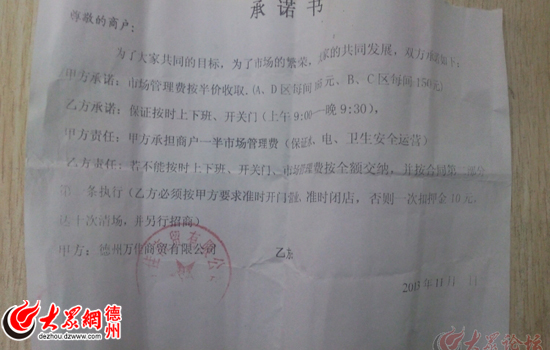 承诺书
尊敬的商户:
为了大家共同的目标,为了市场的繁荣,大家的共同发展,双方承诺如下:
甲方承诺:市场管理费按半价收取.(A、D区每间 元、B、C区每间150元)
乙方承诺:保证按时上下班、开关门(上午9:00—晚9:30),
甲方责任:甲方承担商户一半市场管理费(保证 、电、卫生安全运营)
乙方责任:若不能按时上下班、开关门、市场管理费按全额交纳,并按合同第 部分
第 条执行(乙方必须按甲方要求准时开门营 准时闭店,否则一次扣押金10元.
达十次清场,并另行招商)
甲方:德州万 商贸有限公司
乙方
2013年11月 日
大众网德州
dezhou.dzwww.com
大众论坛